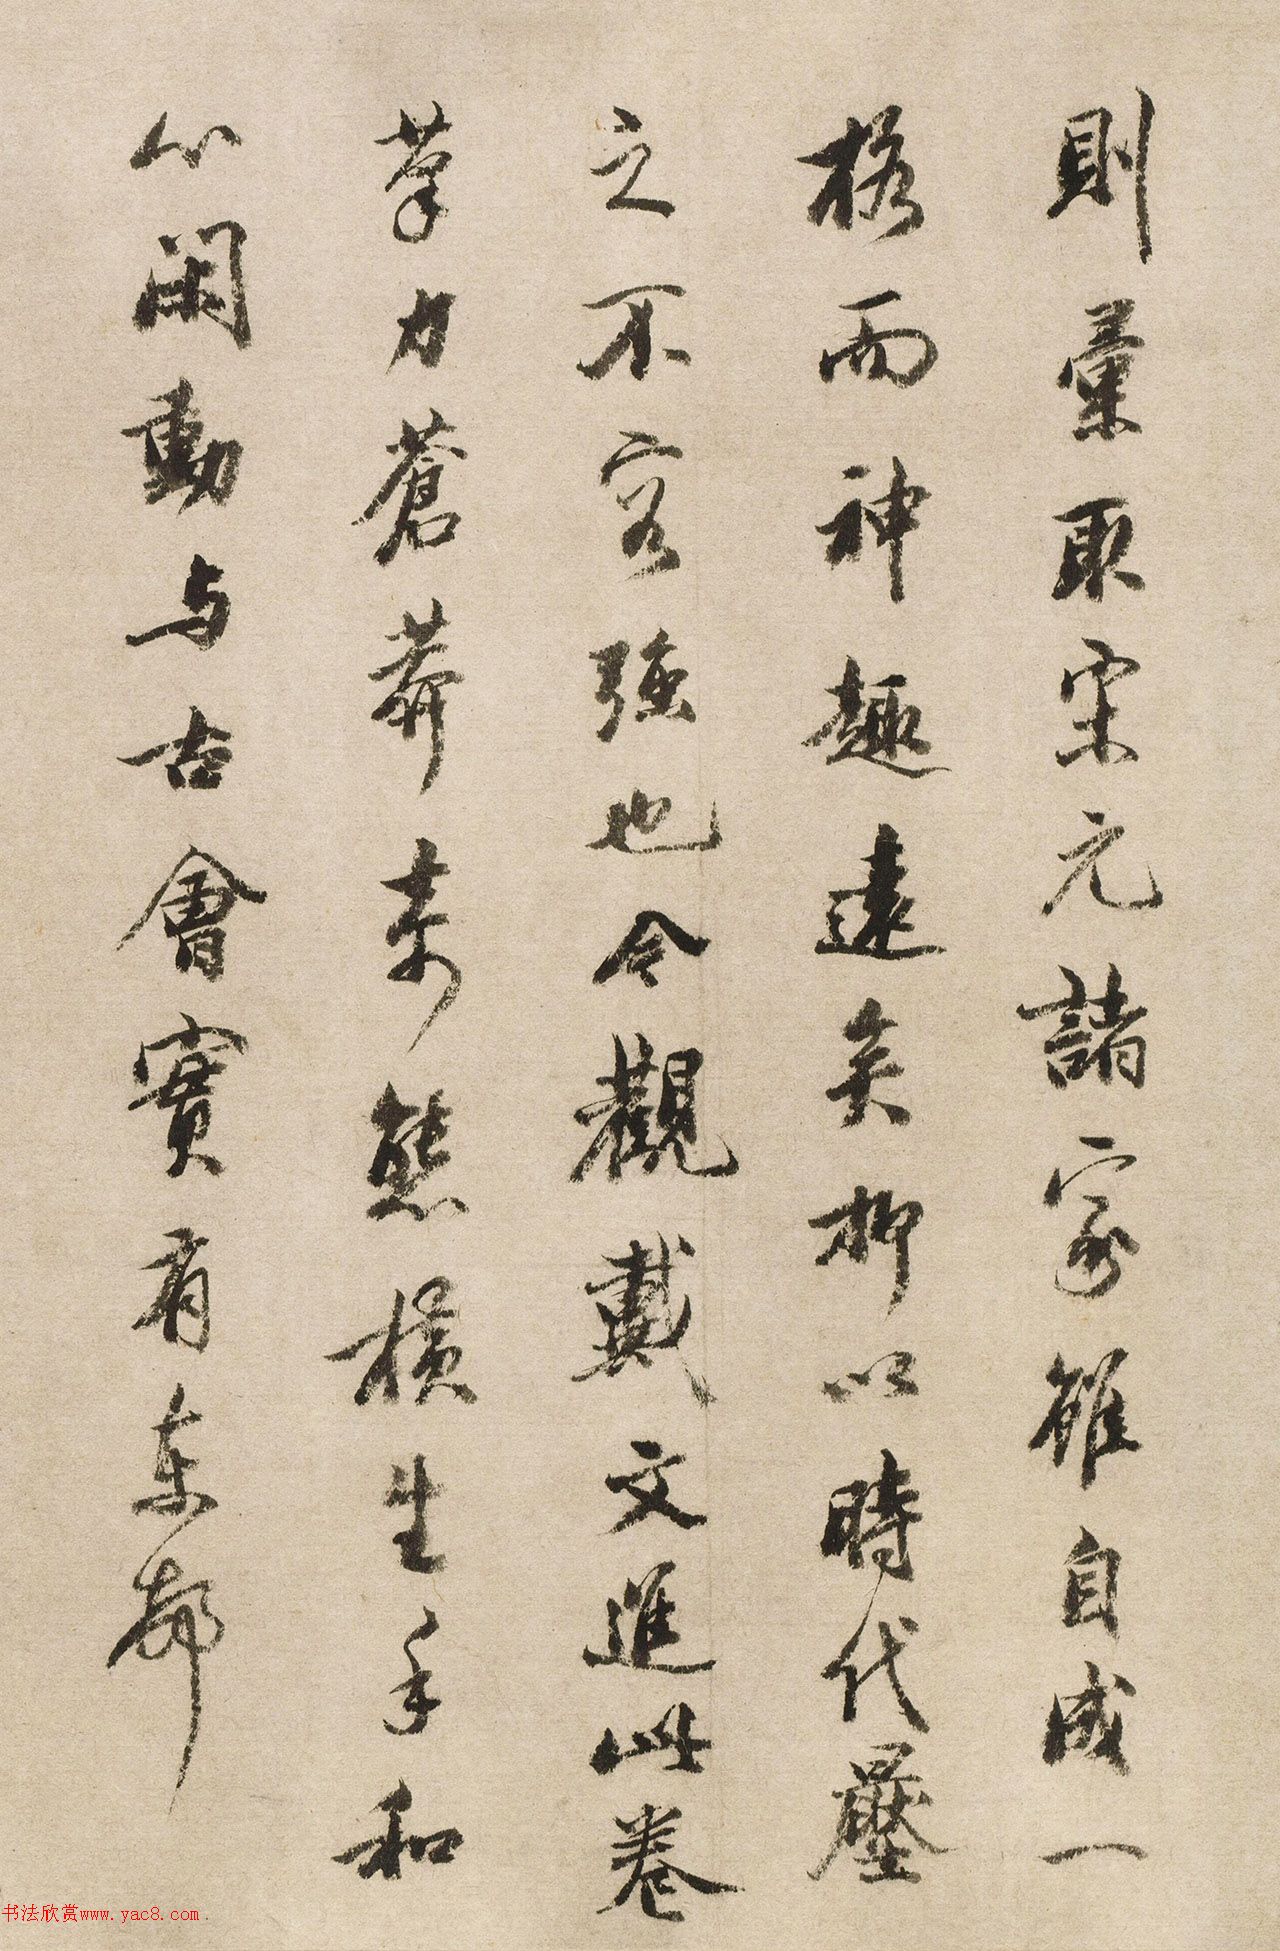 則彙取宋元諸家雖自成一
格而神趣遠矣抑以時代壓
之不容強也今觀戴文進此卷
筆力蒼莽奇態橫生手和
心閑動与古會實有東都
书法欣赏www.yac8.com